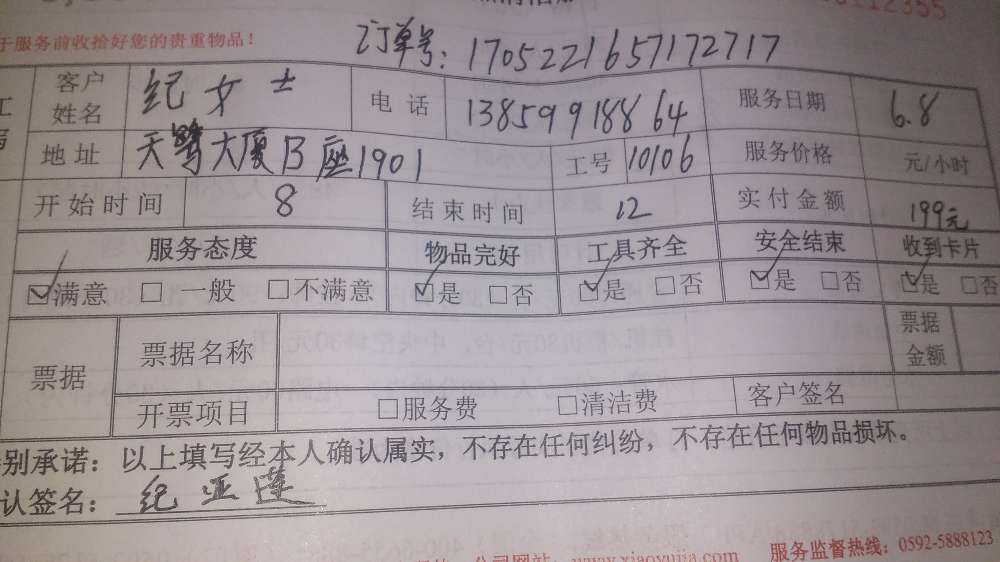 于服务前收拾好您的贵重物品！
订单号：1705221657172717
客户姓名 纪女士 电话 13859918864 服务日期 6.8
地址 天鹭大厦B座1901 工号 10106 服务价格 元/小时
开始时间 8 结束时间 12 实付金额 199元
服务态度 物品完好 工具齐全 安全结束 收到卡片
☑满意 □一般 □不满意 ☑是 □否 ☑是 □否 ☑是 □否 ☑是 □否
票据 票据名称 票据金额
开票项目 □服务费 □清洁费 客户签名
别承诺：以上填写经本人确认属实，不存在任何纠纷，不存在任何物品损坏。
认签名：纪亚莲
公司网站：www.xiaoyujia.com 服务监督热线：0592-5888123